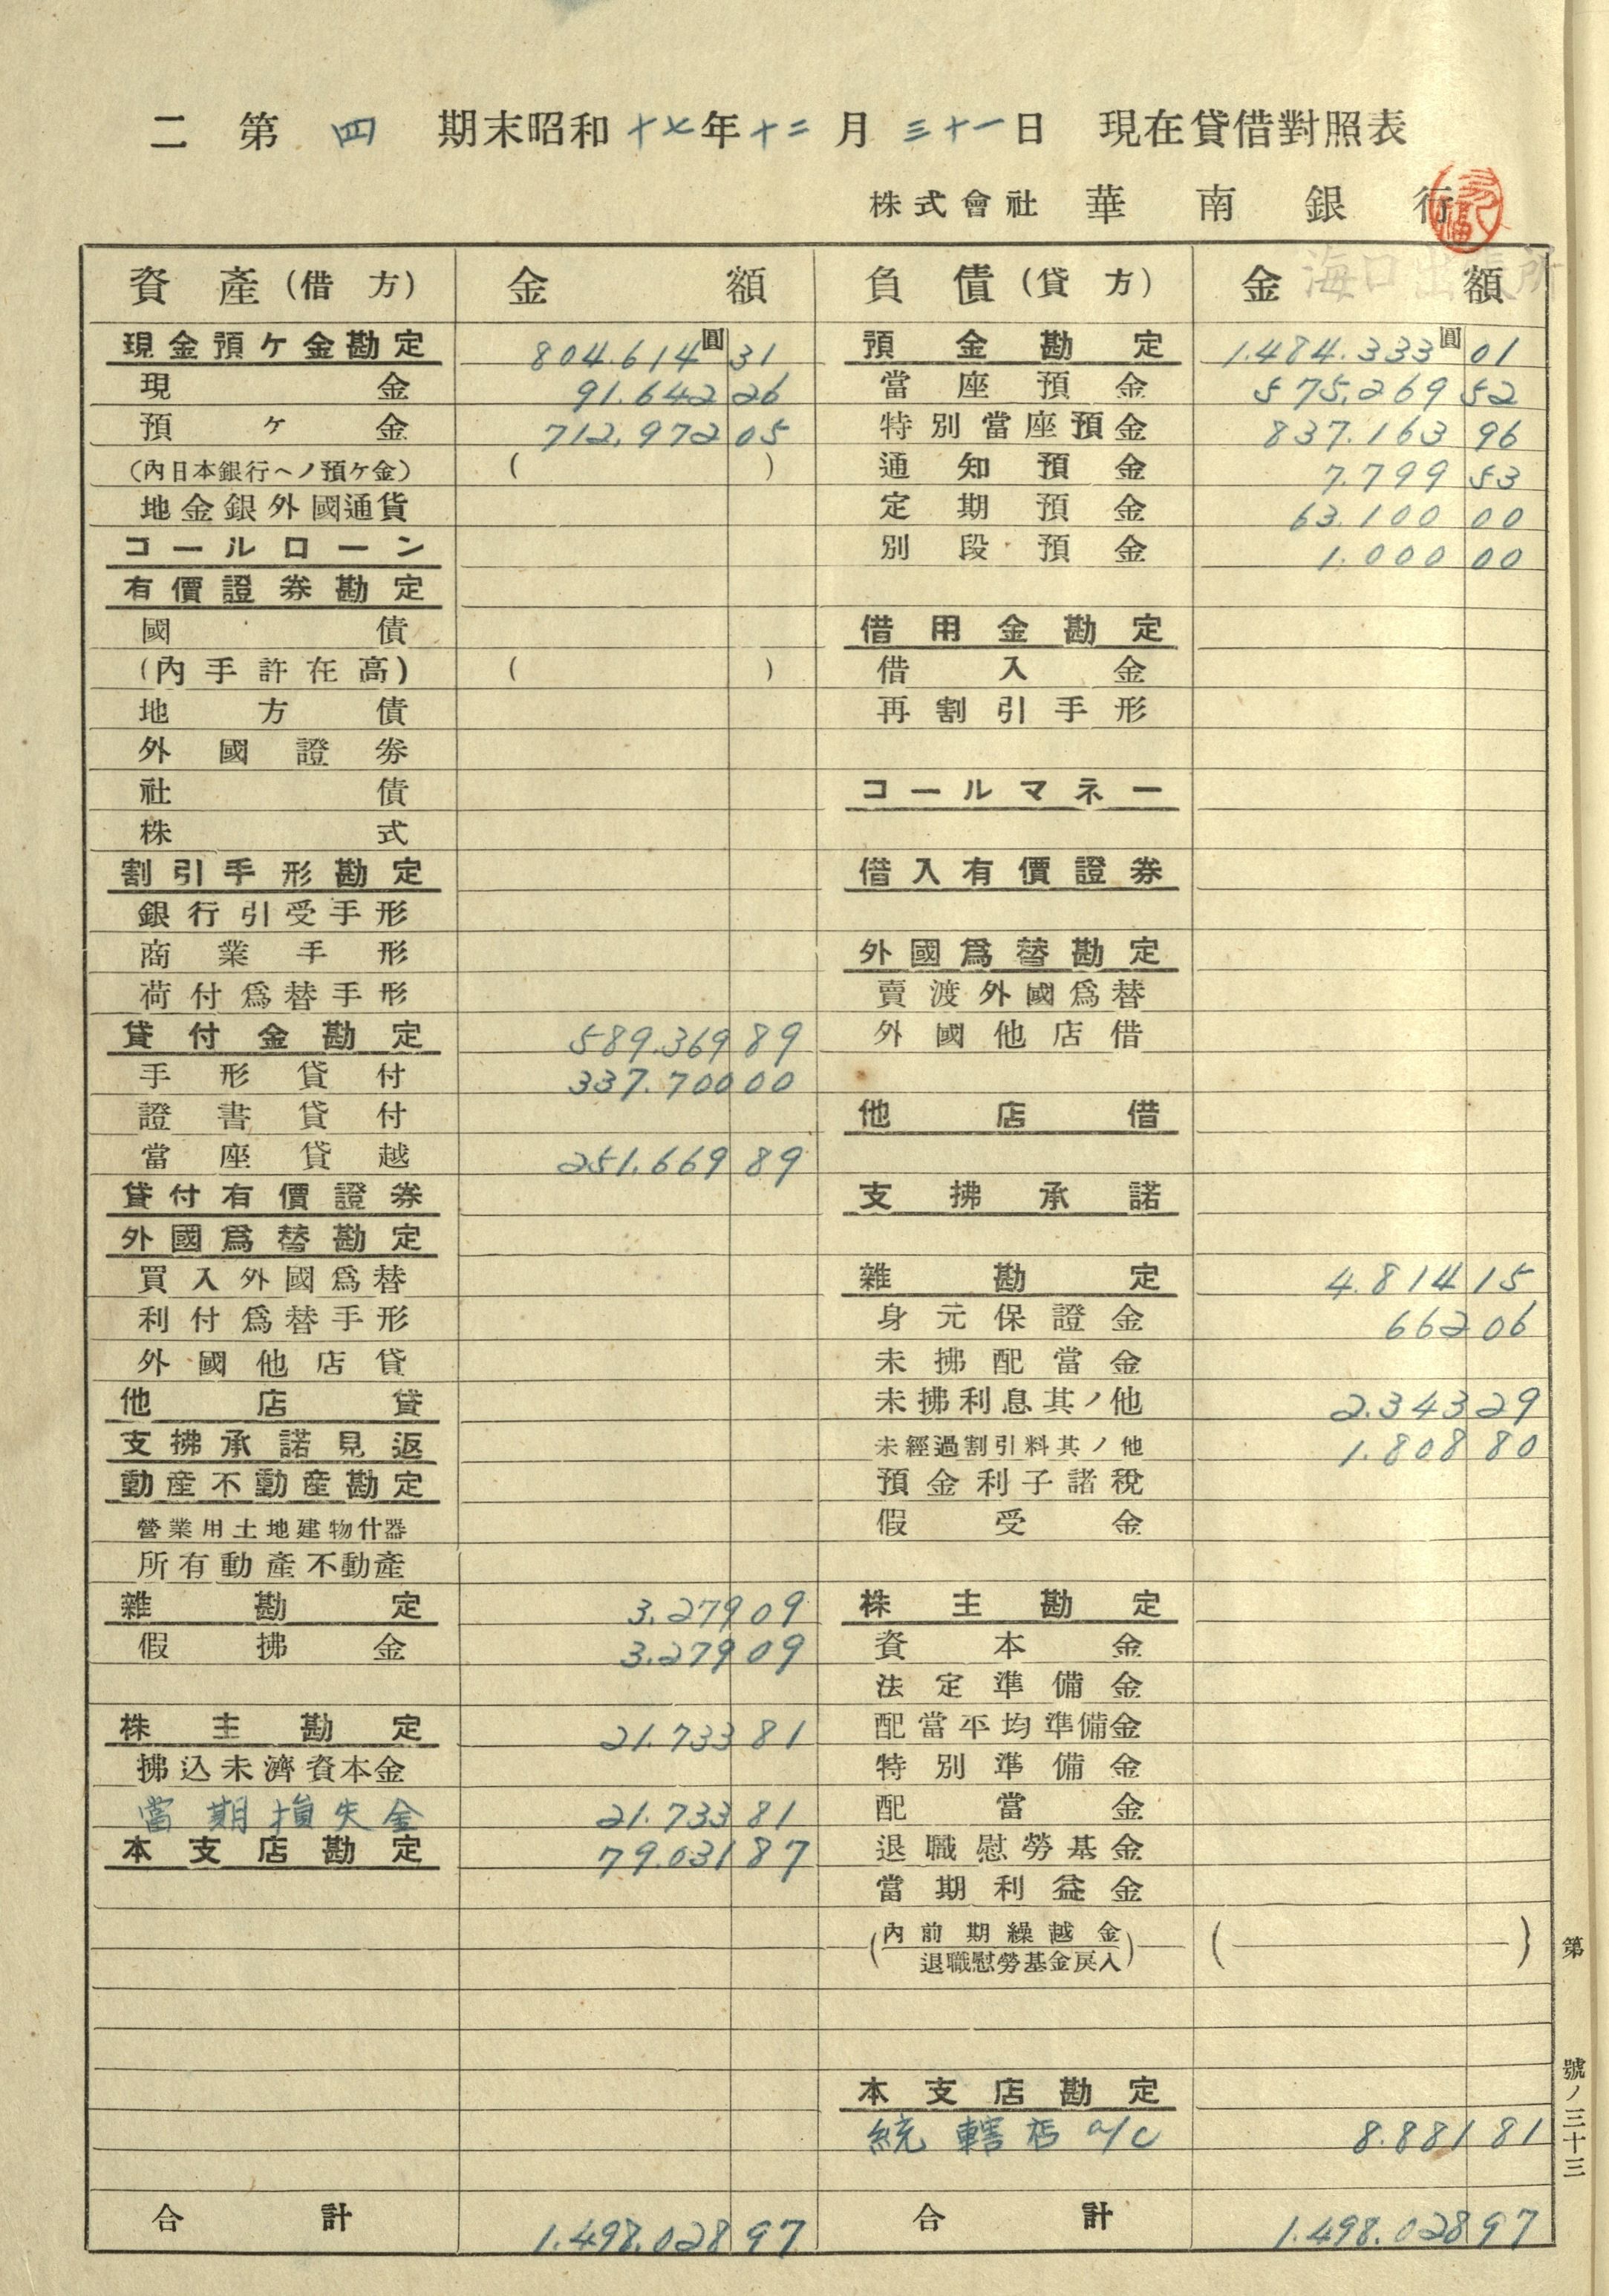 二 第 四 期末昭和十七年十二月三十一日 現在貸借對照表
株式會社 華南銀行
海口出張所
資產(借方) 金額 負債(貸方) 金額
現金預ケ金勘定 804.614圓31 預金勘定 1.484.333圓01
現金 91.642 26 當座預金 575.269 52
預ケ金 712.972 05 特別當座預金 837.163 96
(內日本銀行ヘノ預ケ金) ( ) 通知預金 7.799 53
地金銀外國通貨 定期預金 63.100 00
コールローン 別段預金 1.000 00
有價證券勘定
國債 借用金勘定
(內手許在高) ( ) 借入金
地方債 再割引手形
外國證券
社債 コールマネー
株式
割引手形勘定 借入有價證券
銀行引受手形
商業手形 外國爲替勘定
荷付爲替手形 賣渡外國爲替
貸付金勘定 589.369 89 外國他店借
手形貸付 337.700 00
證書貸付 他店借
當座貸越 251.669 89
貸付有價證券 支拂承諾
外國爲替勘定
買入外國爲替 雜勘定 4.814 15
利付爲替手形 身元保證金 662 06
外國他店貸 未拂配當金
他店貸 未拂利息其ノ他 2.343 29
支拂承諾見返 未經過割引料其ノ他 1.808 80
動產不動產勘定 預金利子諸稅
營業用土地建物什器 假受金
所有動產不動產
雜勘定 3.279 09 株主勘定
假拂金 3.279 09 資本金
法定準備金
株主勘定 21.733 81 配當平均準備金
拂込未濟資本金 特別準備金
當期損失金 21.733 81 配當金
本支店勘定 79.031 87 退職慰勞基金
當期利益金
(內前期繰越金 ( )
退職慰勞基金戾入)
本支店勘定
統轄店 a/c 8.881 81
合計 1.498.028 97 合計 1.498.028 97
第 號ノ三十三